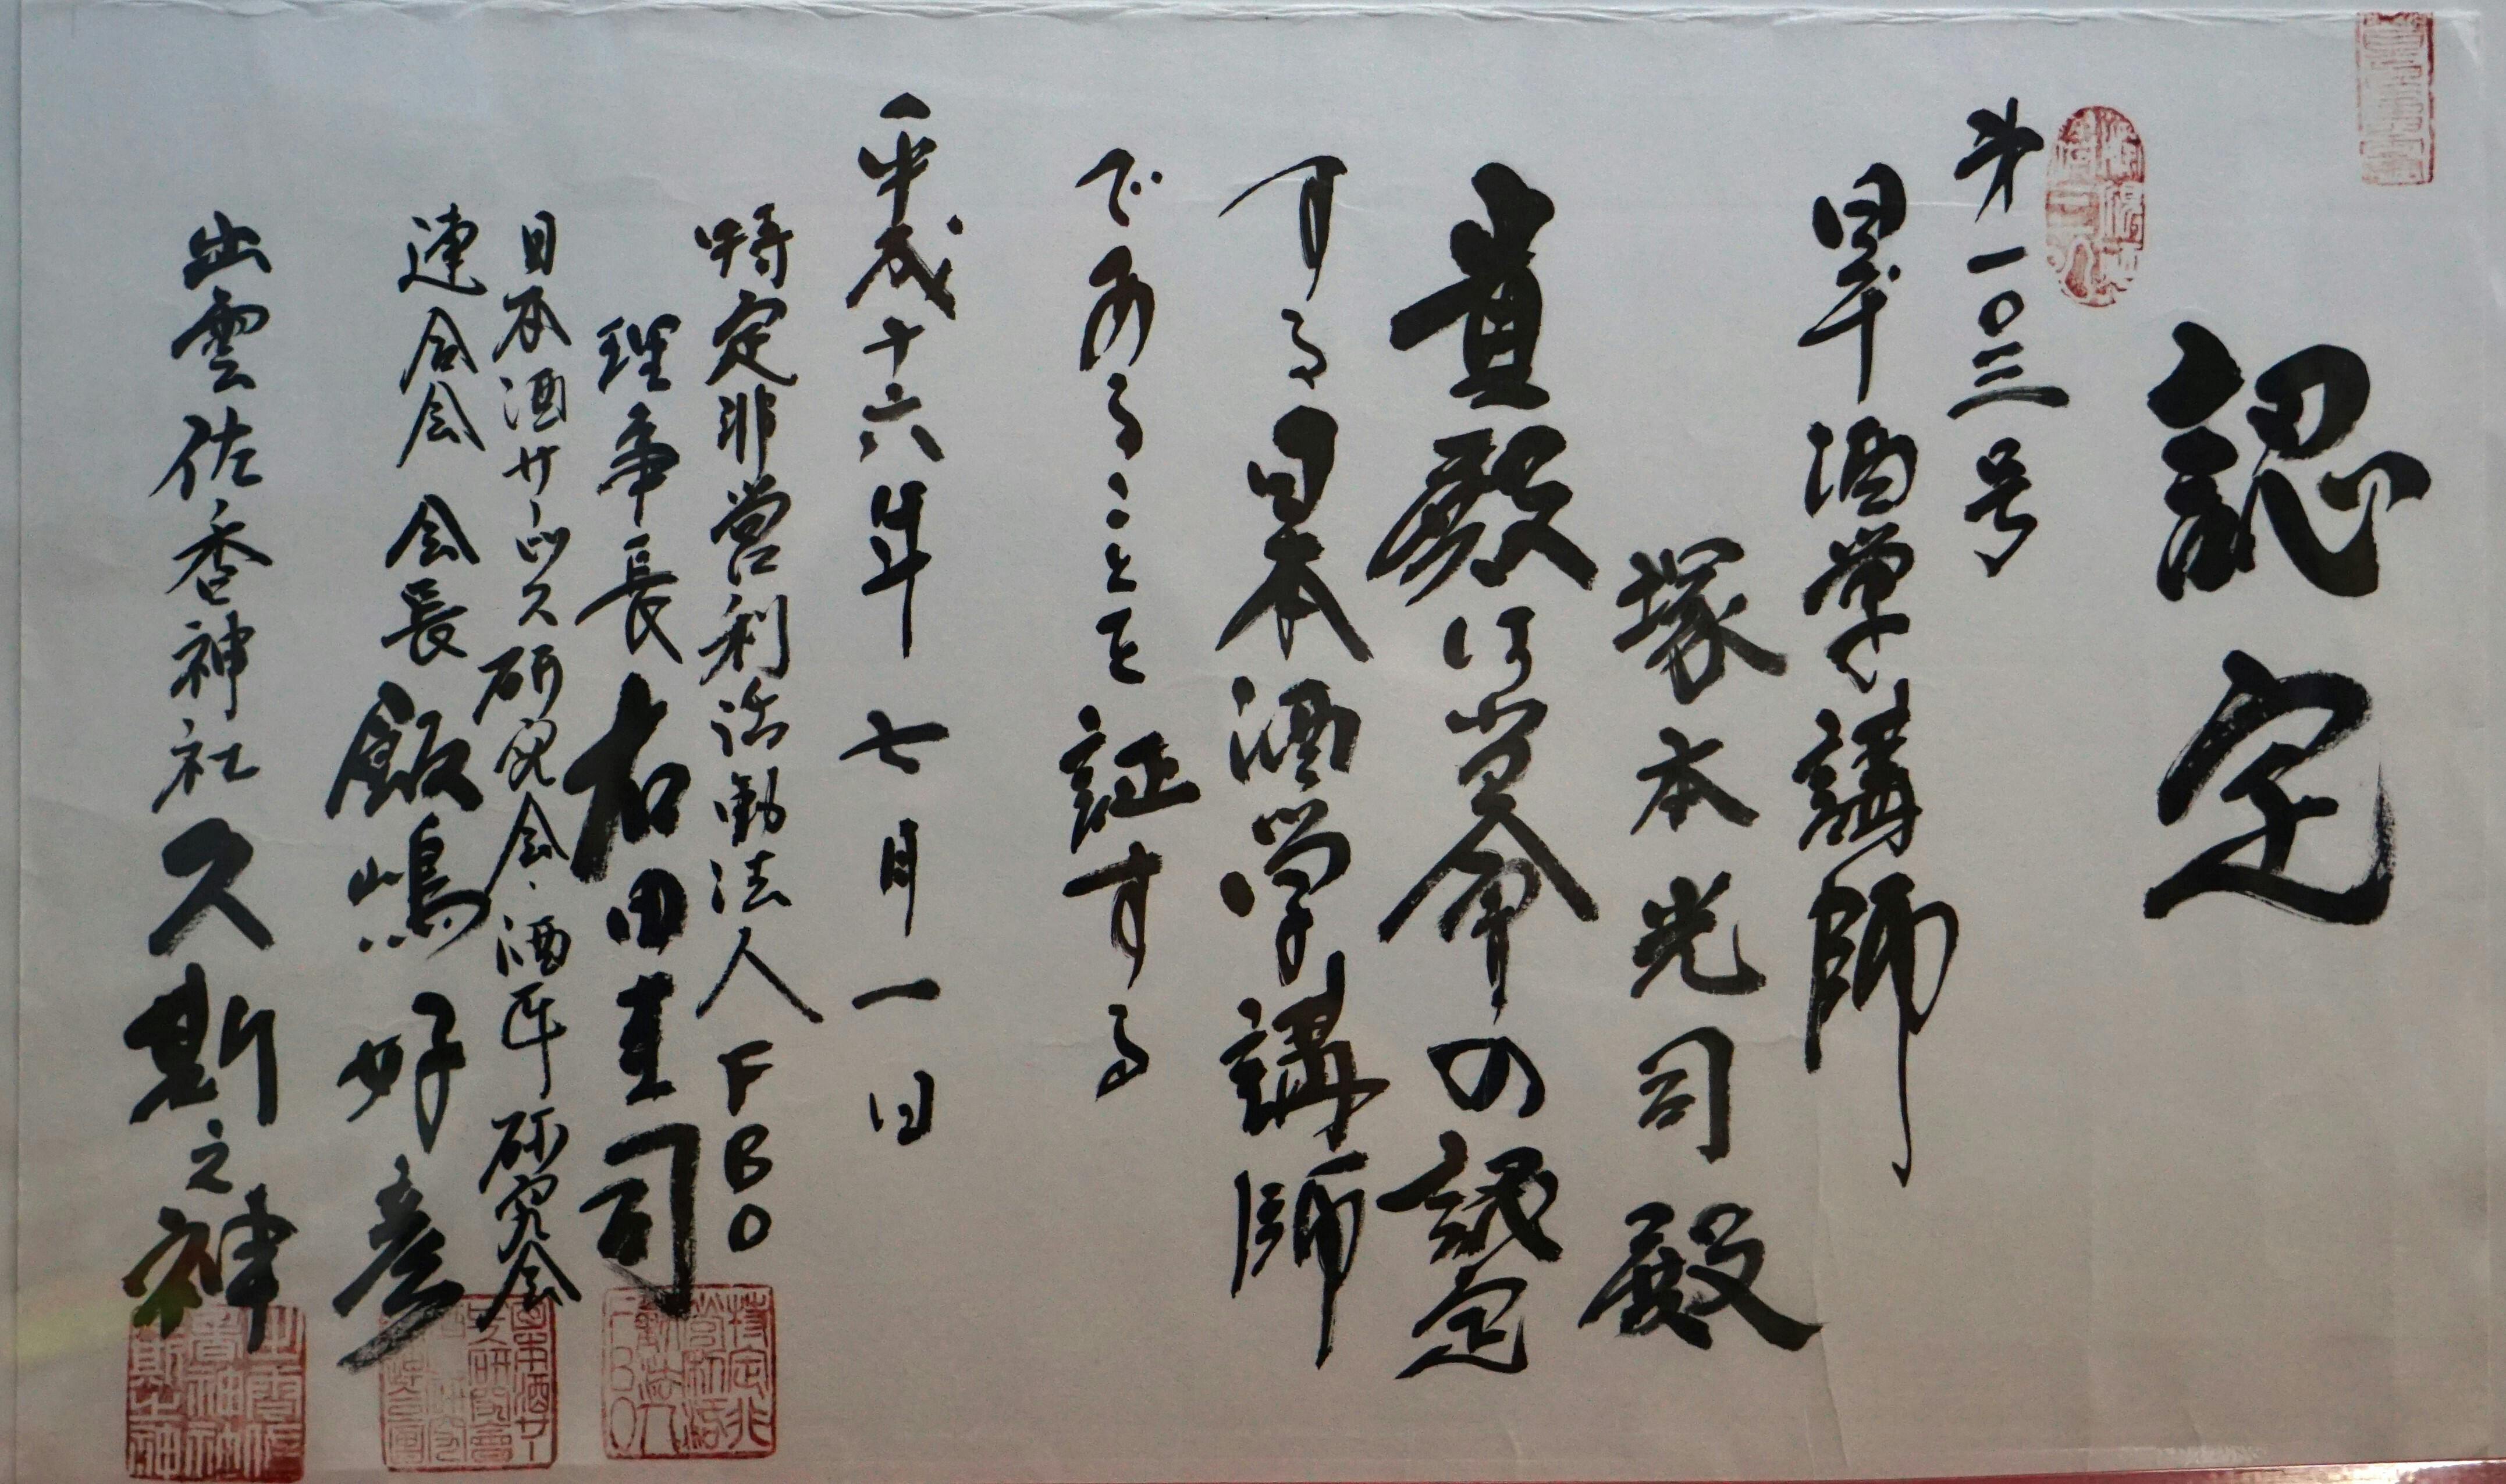 認定
第一〇三号
日本酒学講師
塚本光司 殿
貴殿は当会の認定
する日本酒学講師
であることを証する
平成十六年 七月一日
特定非営利活動法人FBO
理事長 右田圭司
日本酒サービス研究会・酒匠研究会
連合会 会長 飯嶋好彦
出雲佐香神社 久斯之神